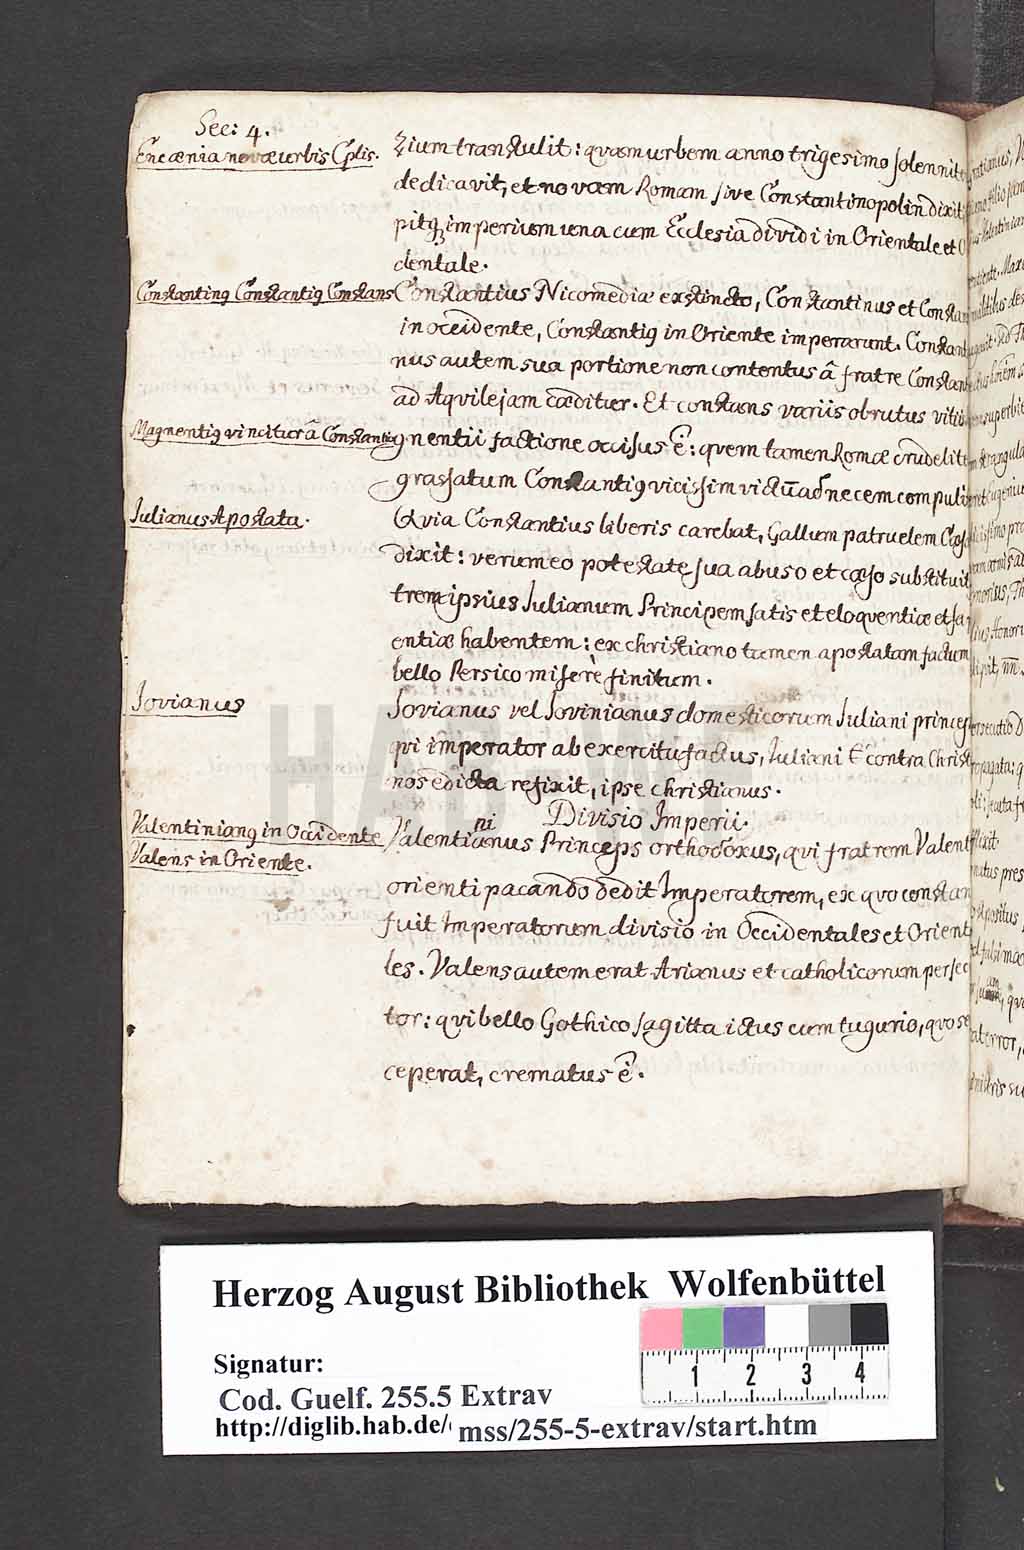 Sec: 4.
Encænia novæ urbis Cplis.
zium transtulit: quam urbem anno trigesimo solennit
dedicavit, et novam Romam sive Constantinopolin dixit
pitq; imperium una cum Ecclesia dividi in Orientale et O
dentale.
Constantinq Constantiq Constans
Constantius Nicomediæ exstincto, Constantinus et Constan
in occidente, Constantiq in Oriente imperarunt. Constant
nus autem sua portione non contentus â fratre Constant
ad Aqvilejam cæditur. Et constans variis obrutus vitiis
Magnentiq vincitur â Constantio
gnentii factione occisus ê: quem tamen Romæ crudelite
grassatum Constantiq vicissim victū ad necem compuli
Iulianus Apostata.
Qvia Constantius liberis carebat, Gallum patruelem Cæsa
dixit: verum eo potestate sua abuso et cæso substituit
trem ipsius Iulianum Principem satis et eloqventiæ et sa
entiæ habentem: ex christiano tamen apostatam factum
bello Persico miserè finitum.
Iovianus
Iovianus vel Iovinianus domesticorum Iuliani princeps
qvi imperator ab exercitu factus, Iuliani E contra Christ
nos edicta refixit, ipse christianus.
Divisio Imperii.
Valentinianq in Occidente
Valens in Oriente.
ni
Valentianus Princeps orthodoxus, qvi fratrem Valent
orienti pacando dedit Imperatorem, ex quo constan
fuit Imperatorum divisio in Occidentales et Orient
les. Valens autem erat Arianus et catholicorum persec
tor: qvi bello Gothico sagitta ictus cum tugurio, quo se
ceperat, crematus ê.
HAB-WF
Herzog August Bibliothek Wolfenbüttel
Signatur:
Cod. Guelf. 255.5 Extrav
http://diglib.hab.de/ mss/255-5-extrav/start.htm
1 2 3 4